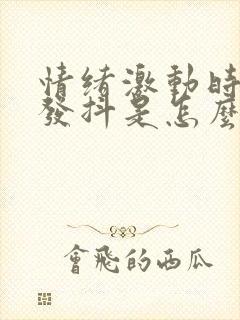 情緒激動時
發抖是怎麼
會飛的西瓜